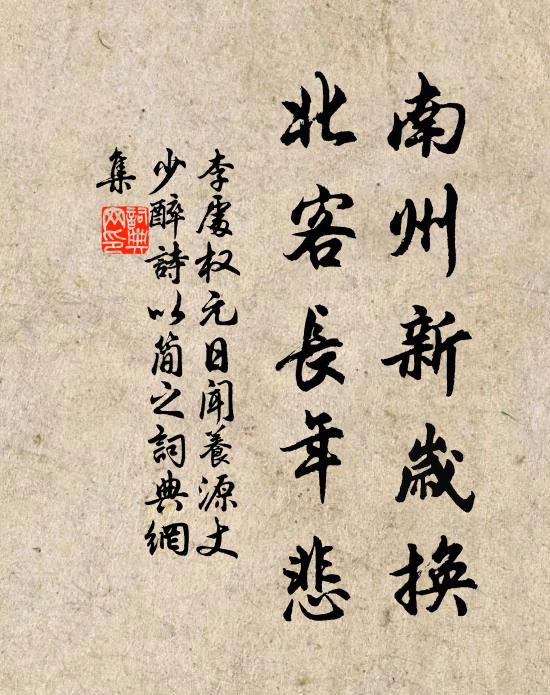 南州新歲換
北客長年悲
李處权元日聞養源丈
少醉詩以簡之詞典網
集
詞典網印